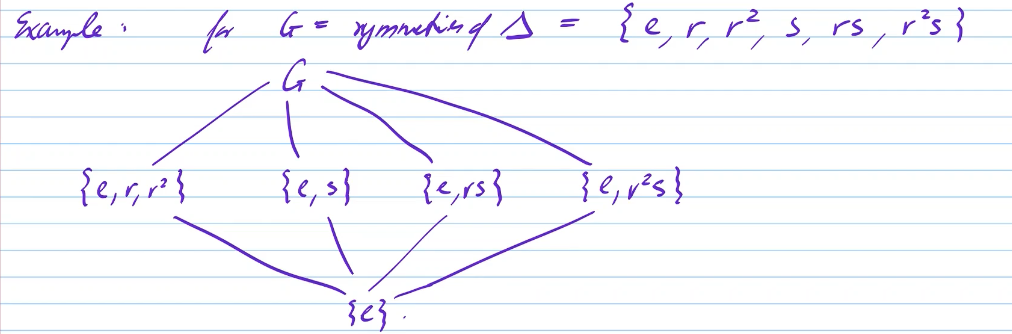 Example: for G = symmetries of Δ = {e, r, r², s, rs, r²s}
G
{e, r, r²} {e, s} {e, rs} {e, r²s}
{e}.